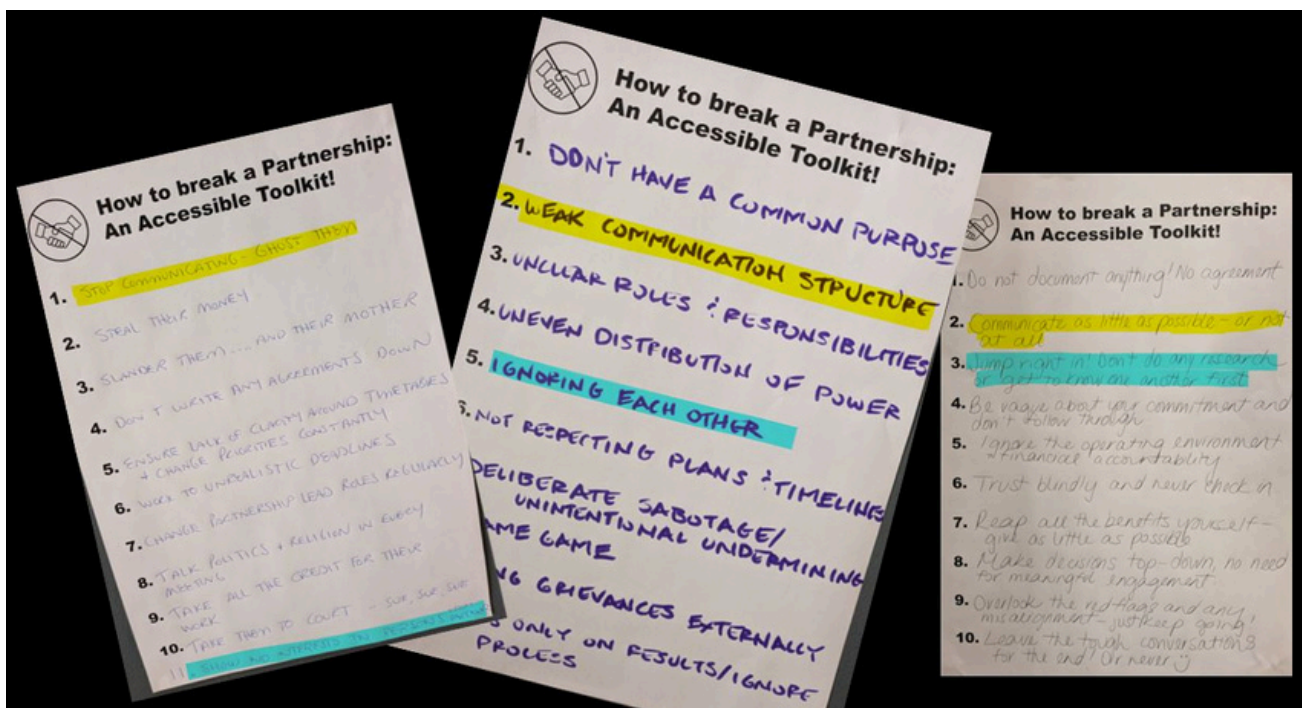 How to break a Partnership:
An Accessible Toolkit!
1. STOP COMMUNICATING - GHOST THEM
2. STEAL THEIR MONEY
3. SLANDER THEM.... AND THEIR MOTHER
4. DON'T WRITE ANY AGREEMENTS DOWN
5. ENSURE LACK OF CLARITY AROUND TIMETABLES
+ CHANGE PRIORITIES CONSTANTLY
6. WORK TO UNREALISTIC DEADLINES
7. CHANGE PARTNERSHIP LEAD ROLES REGULARLY
8. TALK POLITICS + RELIGION IN EVERY
MEETING
9. TAKE ALL THE CREDIT FOR THEIR
WORK
10. TAKE THEM TO COURT - SUE, SUE, SUE
11. SHOW NO INTEREST IN
How to break a Partnership:
An Accessible Toolkit!
1. DON'T HAVE A COMMON PURPOSE
2. WEAK COMMUNICATION STRUCTURE
3. UNCLEAR ROLES & RESPONSIBILITIES
4. UNEVEN DISTRIBUTION OF POWER
5. IGNORING EACH OTHER
6. NOT RESPECTING PLANS & TIMELINES
DELIBERATE SABOTAGE/
UNINTENTIONAL UNDERMINING
AME GAME
NG GRIEVANCES EXTERNALLY
S ONLY ON RESULTS/IGNORE
PROCESS
How to break a Partnership:
An Accessible Toolkit!
1. Do not document anything! No agreement
2. Communicate as little as possible - or not
at all
3. Jump right in! Don't do any research
or get to know one another first
4. Be vague about your commitment and
don't follow through
5. Ignore the operating environment
+ financial accountability
6. Trust blindly and never check in
7. Reap all the benefits yourself -
give as little as possible
8. Make decisions top-down, no need
for meaningful engagement
9. Overlook the red flags and any
misalignment - just keep going!
10. Leave the tough conversations
for the end! Or never